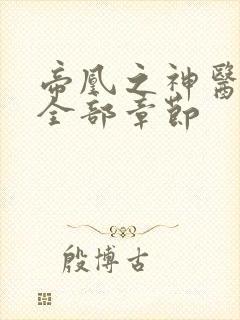 帝凰之神醫
全部章節
殷博古